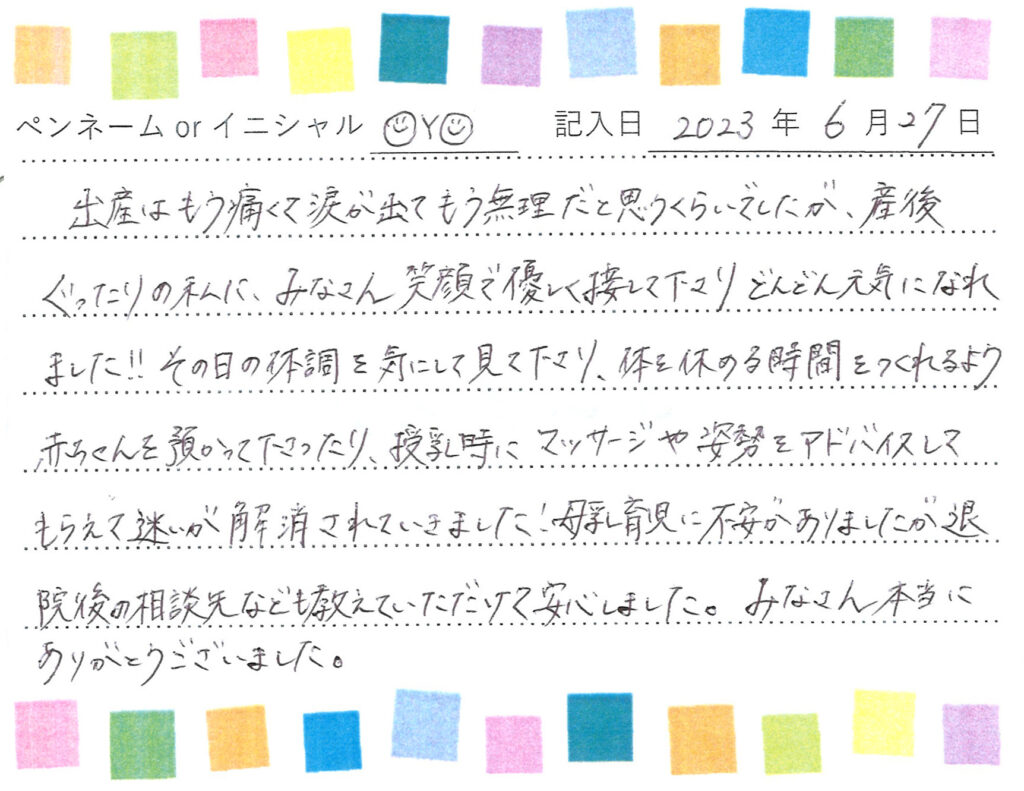 ペンネーム or イニシャル ☺Y☺ 記入日 2023 年 6 月 27 日
出産はもう痛くて涙が出てもう無理だと思うくらいでしたが、産後
ぐったりの私に、みなさん笑顔で優しく接して下さりどんどん元気になれ
ました!! その日の体調を気にして見て下さり、体を休める時間をつくれるよう
赤ちゃんを預かって下さったり、授乳時にマッサージや姿勢をアドバイスして
もらえて迷いが解消されていきました!母乳育児に不安がありましたが退
院後の相談先なども教えていただけて安心しました。みなさん本当に
ありがとうございました。